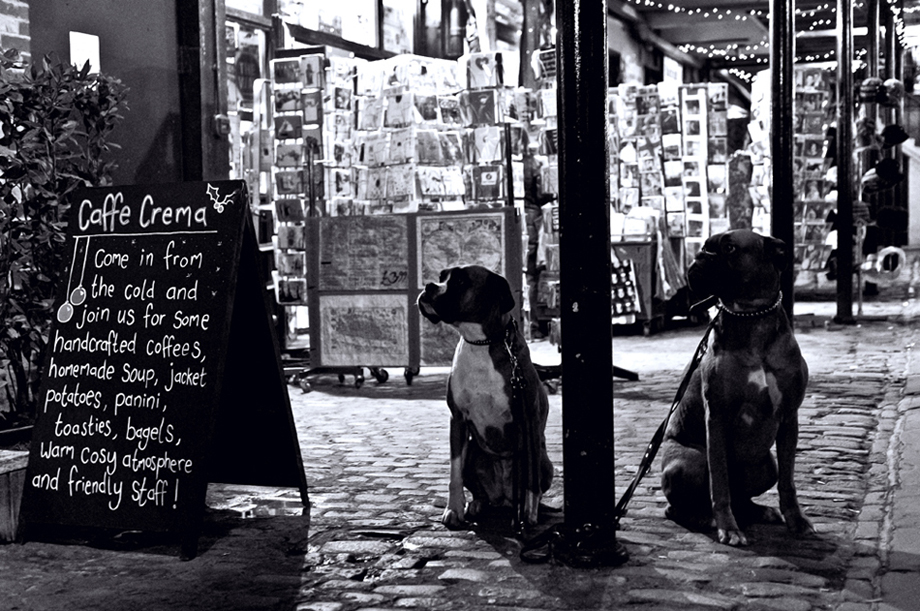 Caffe Crema
Come in from
the cold and
join us for some
handcrafted coffees,
homemade soup, jacket
potatoes, panini,
toasties, bagels,
warm cosy atmosphere
and friendly staff!